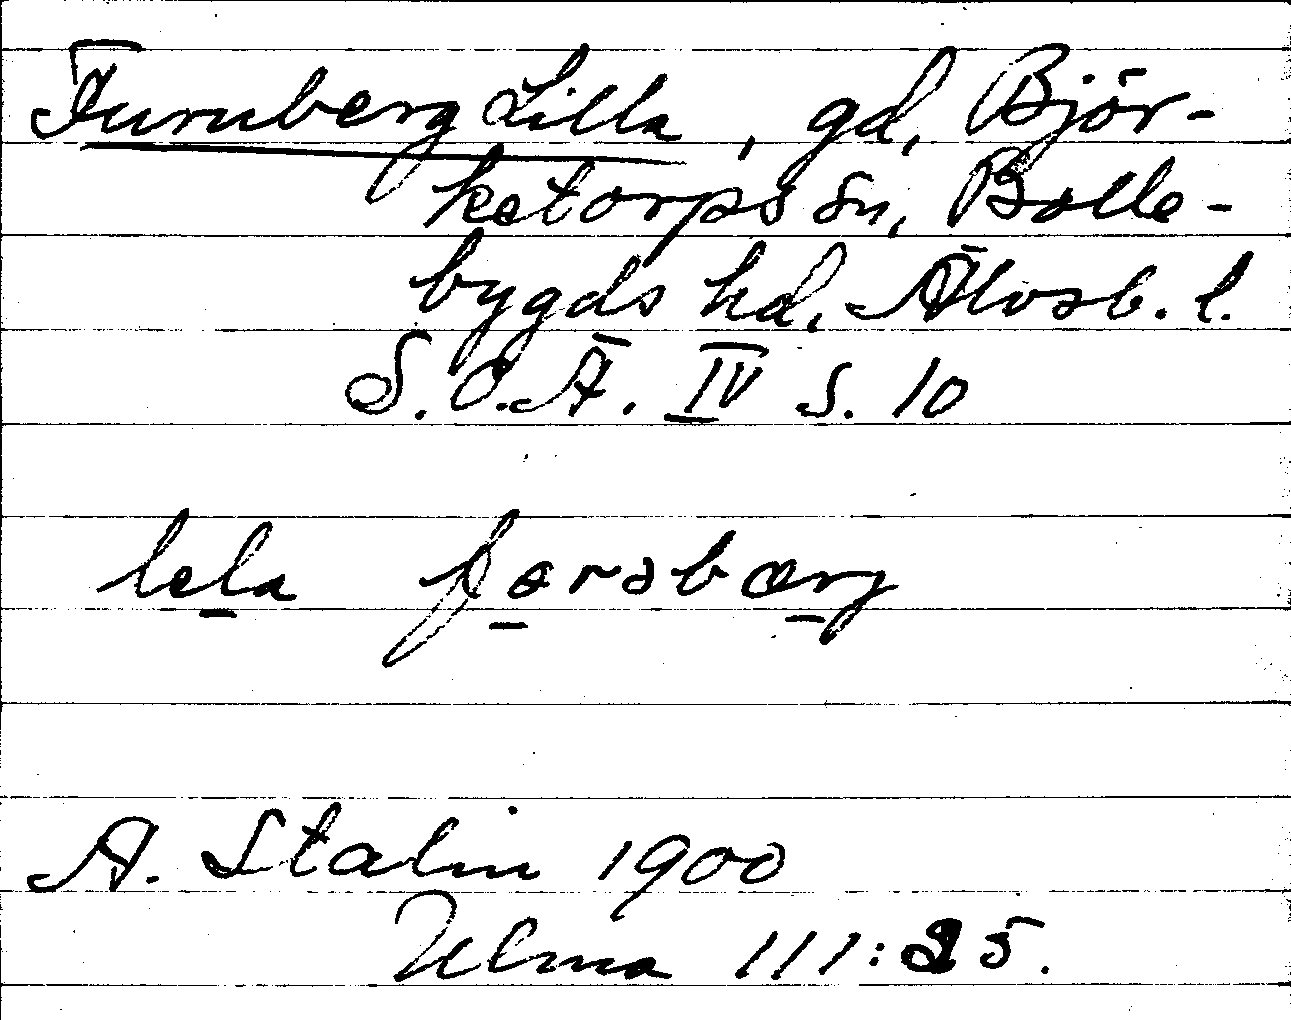 Furuberg Lilla, gd, Björ-
ketorps sn, Bolle-
bygds hd, Älvsb. l.
S.O.Ä. IV s. 10
lela forsbærg
A. Stalin 1900
Ulma 111:25.